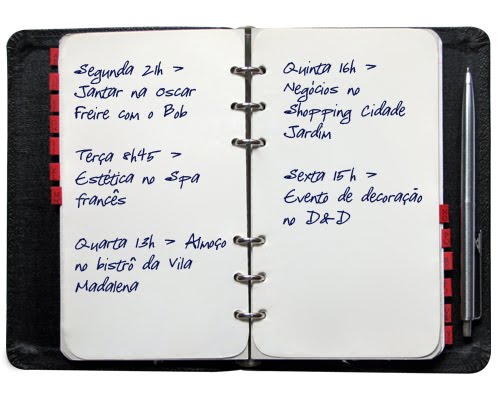 Segunda 21h >
Jantar na Oscar
Freire com o Bob
Terça 8h45 >
Estética no Spa
francês
Quarta 13h > Almoço
no bistrô da Vila
Madalena
Quinta 16h >
Negócios no
Shopping Cidade
Jardim
Sexta 15h >
Evento de decoração
no D&D